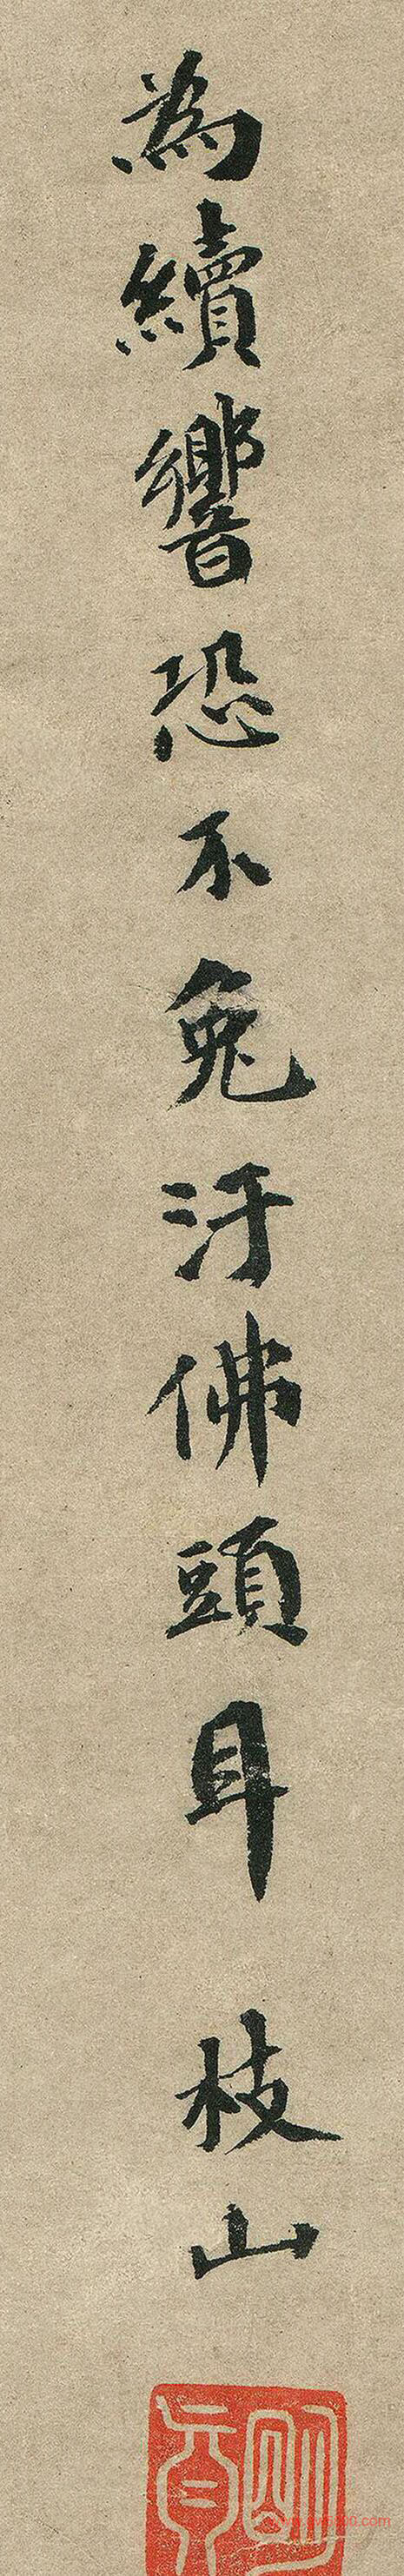 為續響恐不免汙佛頭耳 枝山